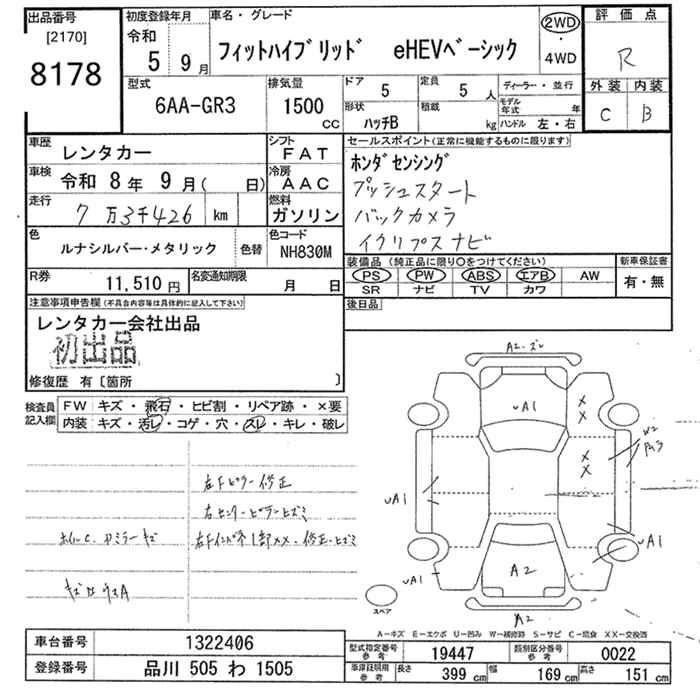 出品番号
[2170]
8178
初度登録年月
令和
5 9月
車名・グレード
フィットハイブリッド eHEVベーシック
2WD
4WD
評価点
R
外装 内装
C B
型式
6AA-GR3
排気量
1500 CC
ドア 5
定員 5 人
形状 ハッチB
積載 kg
ディーラー・並行
モデル年式 年
ハンドル 左・右
車歴 レンタカー
車検 令和 8年 9月( 日)
走行 7万3千426 km
シフト FAT
冷房 AAC
燃料 ガソリン
色 ルナシルバー・メタリック 色替
色コード NH830M
R券 11,510円
名変通知期限 月 日
セールスポイント(正常に機能するものに限ります)
ホンダセンシング
プッシュスタート
バックカメラ
イクリプスナビ
装備品(純正品に限り○をつけてください)
PS PW ABS エアB AW
SR ナビ TV カワ
新車保証書
有・無
後日品
注意事項申告欄(不具合内容等は具体的に記入して下さい)
レンタカー会社出品
初出品
修復歴 有〔箇所 〕
検査員記入欄
FW キズ・飛石・ヒビ割・リペア跡・×要
内装 キズ・汚レ・コゲ・穴・スレ・キレ・破レ
右Fピラー修正
右センターピラーヒズミ
ホイルC.ドアミラーキズ
A2
A1
A1
A1
A1
A2
A2
W2
スペア
A-キズ E-エクボ U-凹み W-補修跡 S-サビ C-腐食 XX-交換済
車台番号 1322406
登録番号 品川 505 わ 1505
型式指定番号参考 19447
類別区分番号参考 0022
車庫証明用参考 長さ 399 cm 幅 169 cm 高さ 151 cm